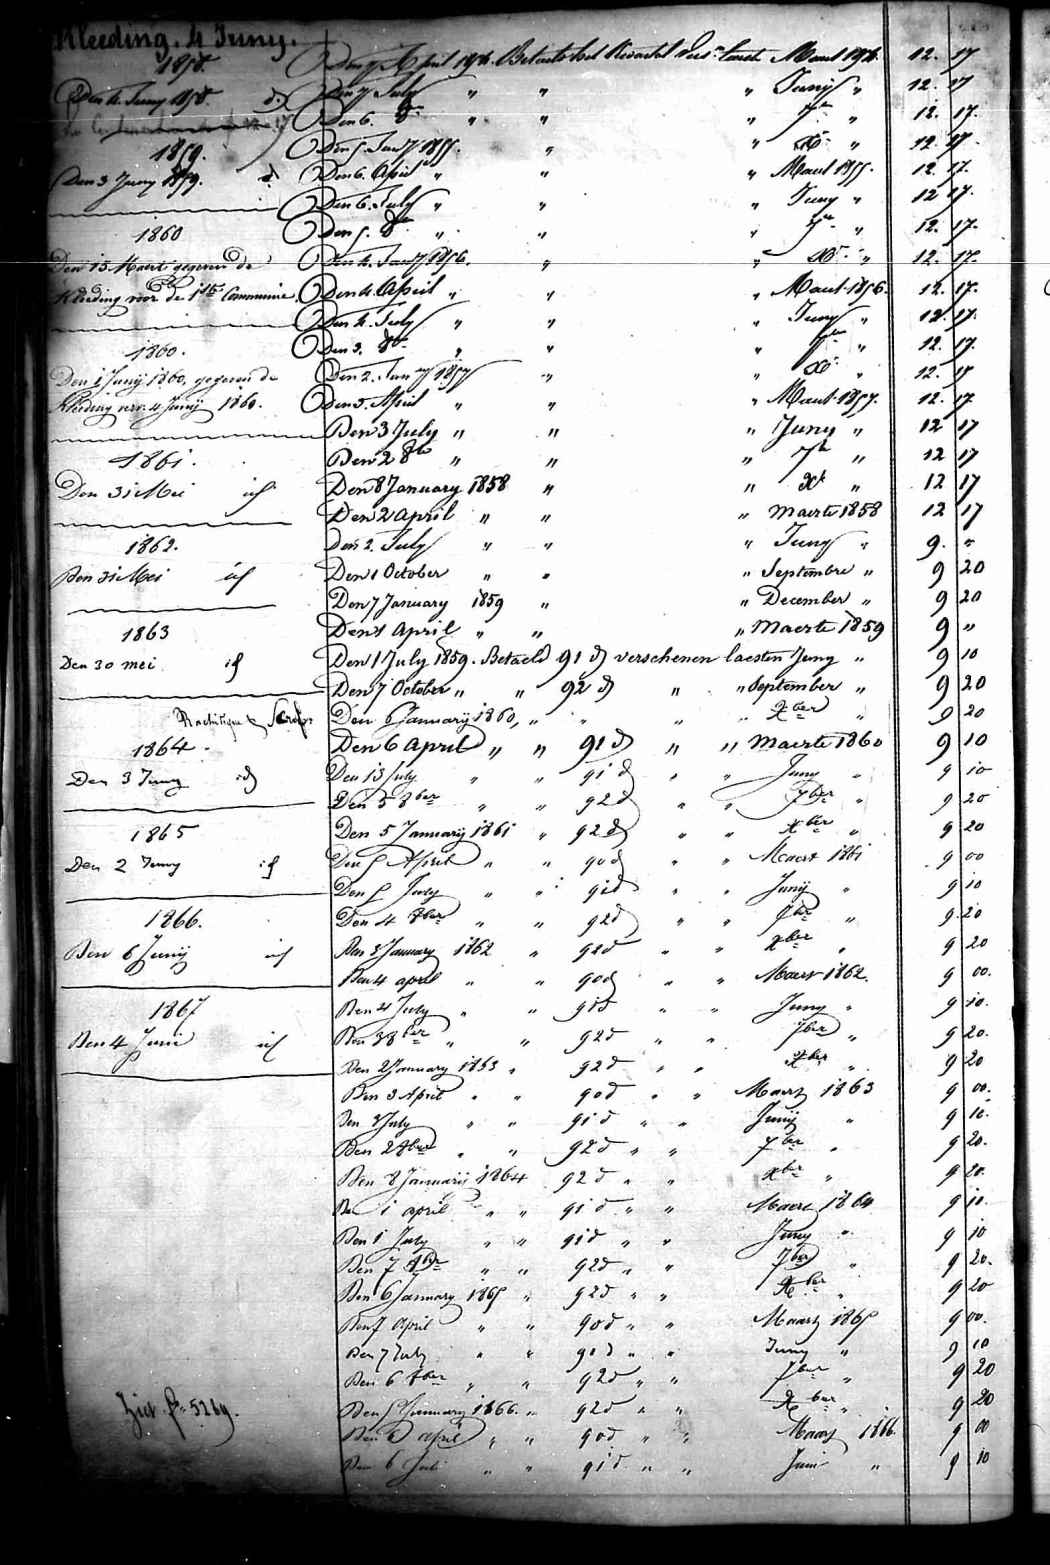 Kleeding. 4 Juny.
1858.
Den 4 Juny 1858. d.
1859.
Den 3 Juny 1859. d.
1860
Den 15 Maert gegeven de
Kleeding voor de 1ste Communie.
1860.
Den 1 Junij 1860, gegeven de
Kleeding verv. 4 Junij 1860.
1861.
Den 31 Mei id
1862.
Den 31 Mei id
1863
Den 30 mei id
Rachitique &
1864.
Den 3 Juny id
1865
Den 2 Juny id
1866.
Den 6 Junij id
1867
Den 4 Junie id
Ziet fo 5269.
Den 7 April 185 Betaeld het Kwartael Maert 185 12. 17
Den 7 July " " " Juny " 12. 17
Den 6. 8br " " " 7br " 12. 17.
Den 5. Jany 1855. " " Xbr " 12. 17.
Den 6. April " " " Maert 1855. 12. 17.
Den 6. July " " " Juny " 12 17.
Den 5. 8br " " " 7br " 12. 17.
Den 4. Jany 1856. " " Xbr " 12. 17.
Den 4. April " " " Maert 1856. 12. 17.
Den 4. July " " " Juny " 12. 17.
Den 3. 8br " " " 7br " 12. 17.
Den 2. Jany 1857 " " Xbr " 12. 17
Den 3. April " " " Maert 1857. 12. 17
Den 3 July " " " Juny " 12 17
Den 2 8br " " " 7br " 12 17
Den 8 January 1858 " " Xbr " 12 17
Den 2 April " " " Maerte 1858 12 17
Den 2. July " " " Juny " 9. "
Den 1 October " " " Septembre " 9 20
Den 7 January 1859 " " December " 9 20
Den 1 April " " " Maerte 1859 9 "
Den 1 July 1859. Betaeld 91 d verschenen laesten Juny " 9 10
Den 7 October " " 92 d " " September " 9 20
Den 6 Januarij 1860, " " " " Xber " 9 20
Den 6 April " " 91 d " " Maerte 1860 9 10
Den 13 July " " 91 d " " Juny " 9 10
Den 5 8ber " " 92 d " " 7ber " 9 20
Den 5 Januarij 1861 " 92 d " " Xber " 9 20
Den 5 April " " 90 d " " Maert 1861 9 00
Den 5 July " " 91 d " " Junij " 9 10
Den 4 8ber " " 92 d " " 7br " 9. 20
Den 3 January 1862 " 92 d " " Xber " 9 20
Den 4 april " " 90 d " " Maert 1862. 9 00.
Den 4 July " " 91 d " " Juny " 9 10.
Den 3 8ber " " 92 d " " 7ber " 9 20.
Den 2 January 1863 " 92 d " " Xber " 9 20
Den 3 April " " 90 d " " Maert 1863 9 00.
Den 3 July " " 91 d " " Junij " 9 10.
Den 2 8ber " " 92 d " " 7br " 9 20.
Den 8 Januarij 1864 92 d " " Xbr " 9 20.
Den 1 april " " 91 d " " Maert 1864 9 10.
Den 1 July " " 91 d " " Juny " 9 10
Den 7 8br " " 92 d " " 7br " 9 20.
Den 6 January 1865 " 92 d " " Xber " 9 20
Den 7 April " " 90 d " " Maart 1865 9 00.
Den 7 July " " 91 d " " Juny " 9 10
Den 6 8ber " " 92 d " " 7ber " 9 20
Den 5 January 1866. " 92 d " " Xber " 9 20
Den 6 april " " 90 d " " Maart 1866. 9 00
Den 6 Juli " " 91 d " " Juni " 9 10